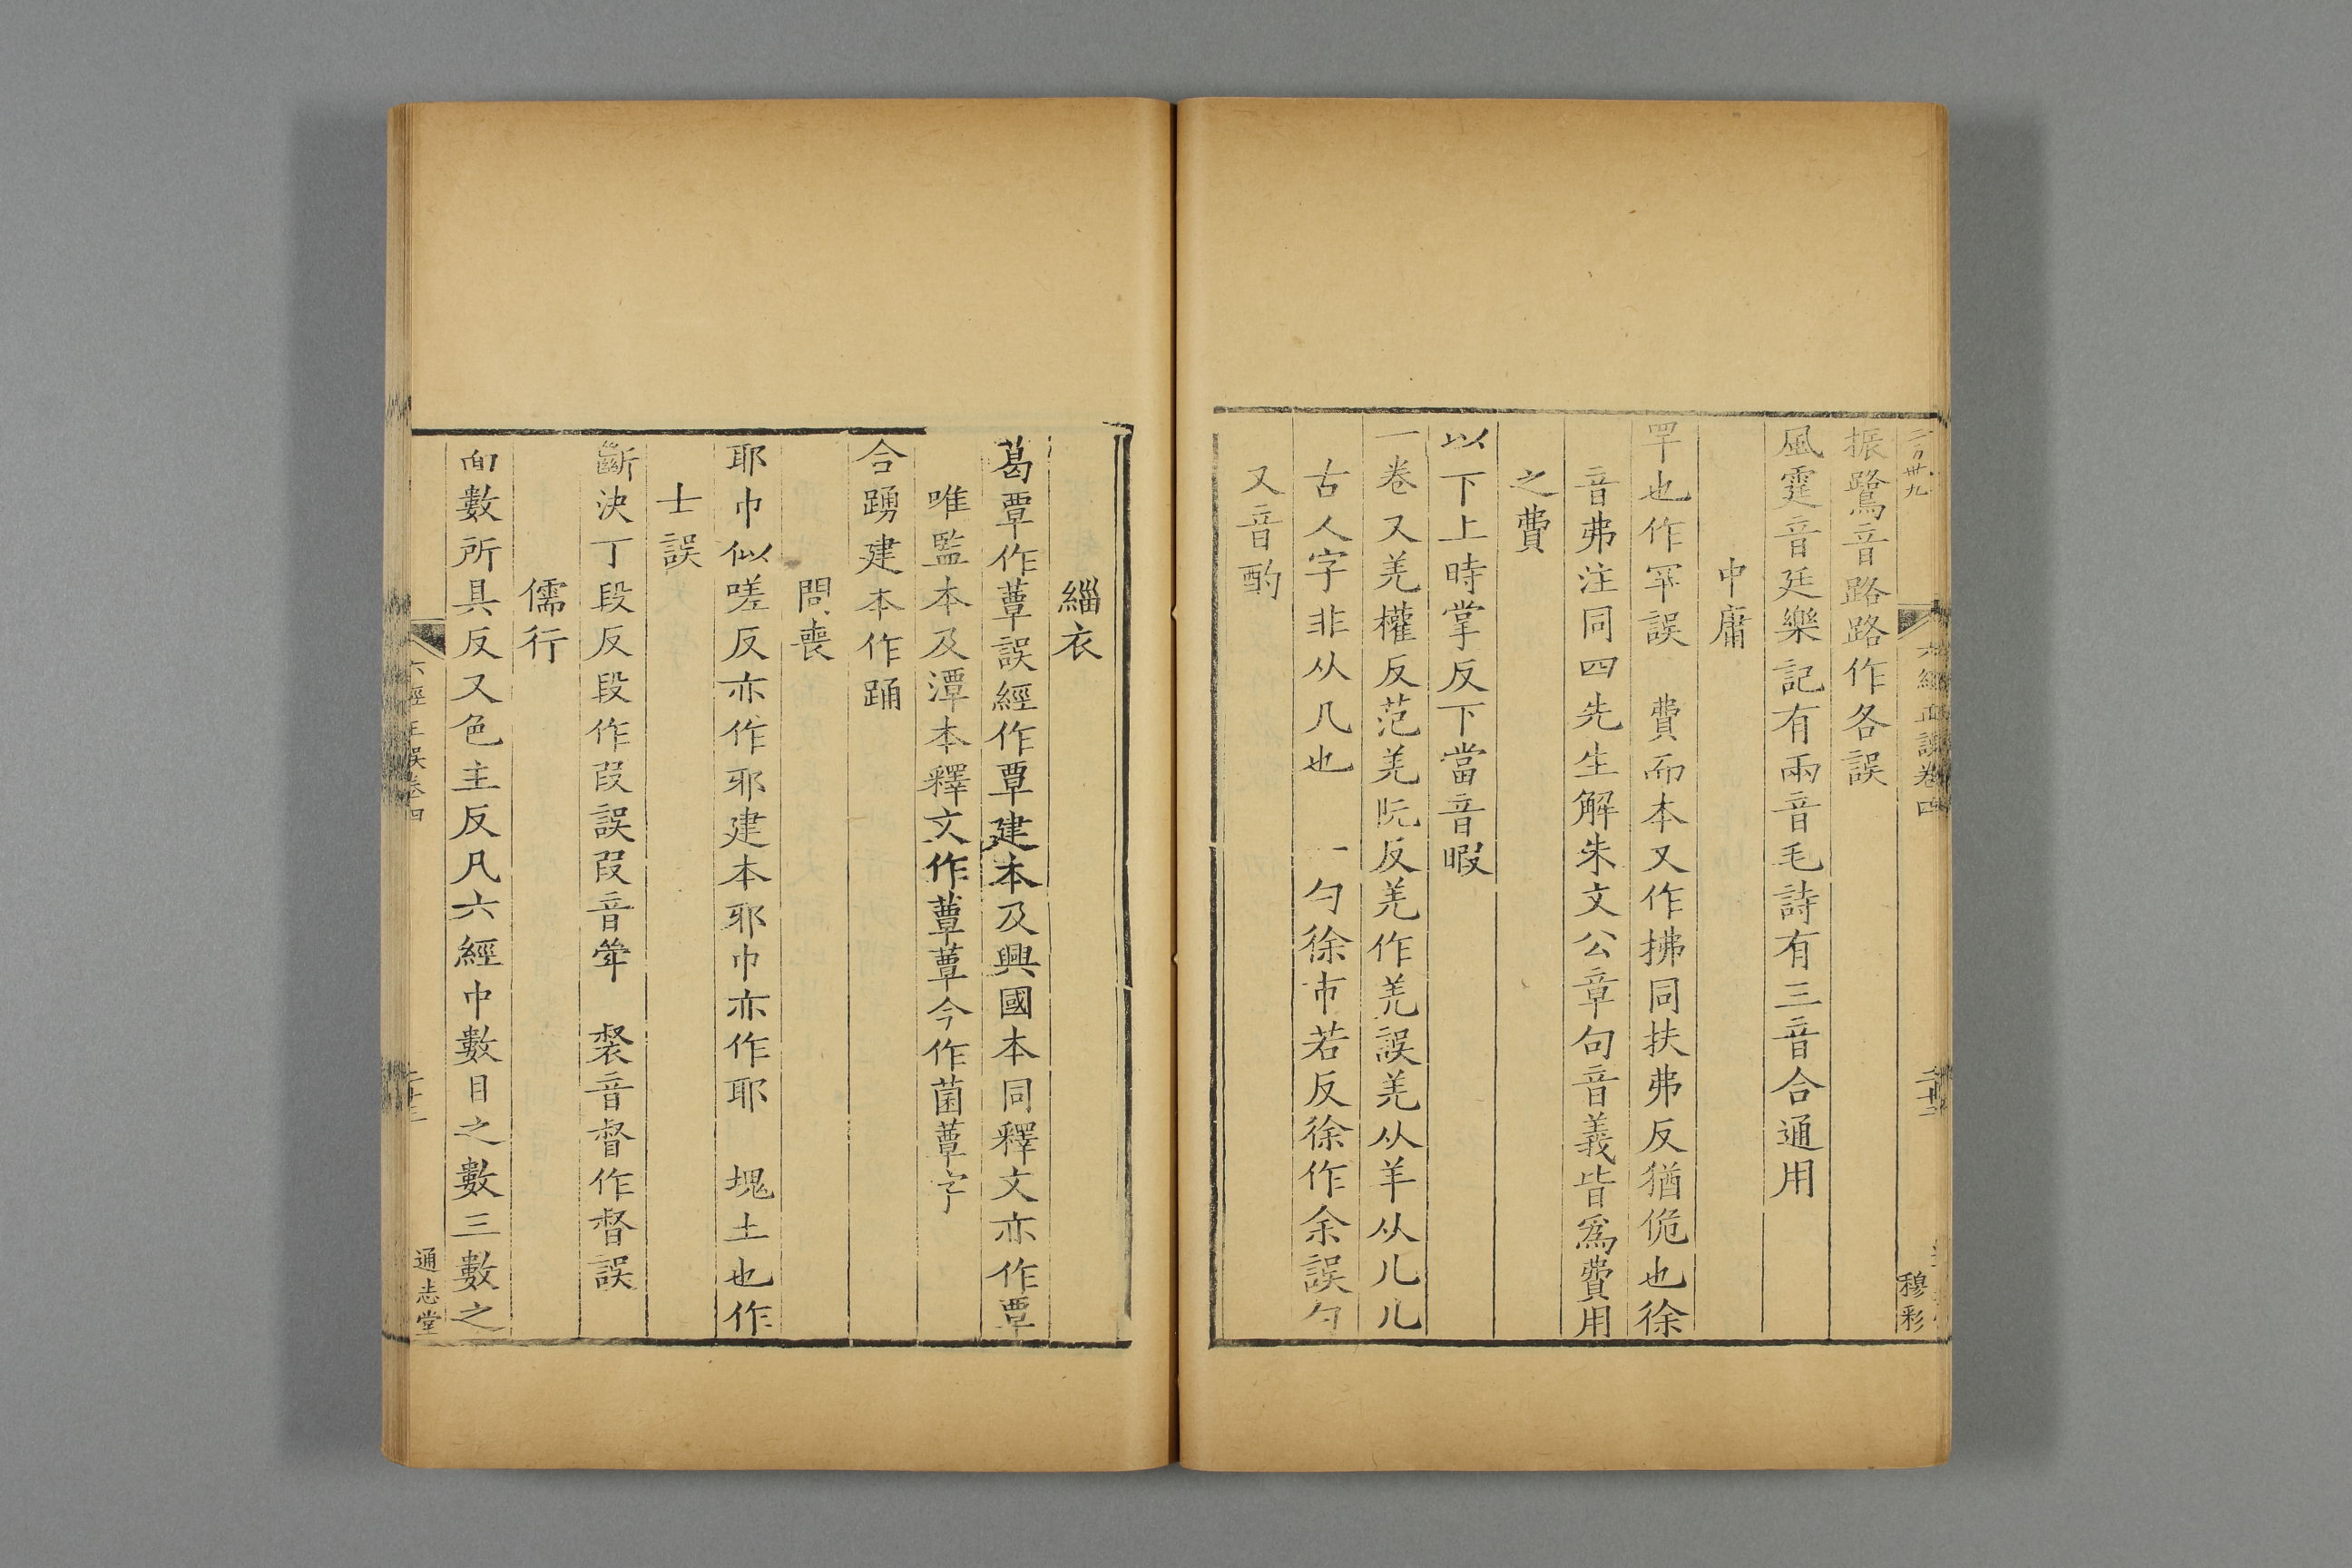 二百卅九
六經正誤卷四
二十二
穆彩
振鷺音路路作各誤
風霆音廷樂記有兩音毛詩有三音合通用
中庸
罕也作罕誤　費而本又作拂同扶弗反猶佹也徐
音弗注同四先生解朱文公章句音義皆爲費用
之費
以下上時掌反下當音暇
一卷又羌權反范羌阮反羌作羗誤羌从羊从儿儿
古人字非从几也　一勺徐市若反徐作余誤勺
又音酌
緇衣
葛覃作蕈誤經作覃建本及興國本同釋文亦作覃
唯監本及潭本釋文作蕈蕈今作菌蕈字
合踴建本作踊
問喪
耶巾似嗟反亦作邪建本邪巾亦作耶　塊土也作
士誤
斷決丁段反段作叚誤叚音斝　裻音督作督誤
儒行
向數所具反又色主反凡六經中數目之數三數之
六經正誤卷四
二十三
通志堂